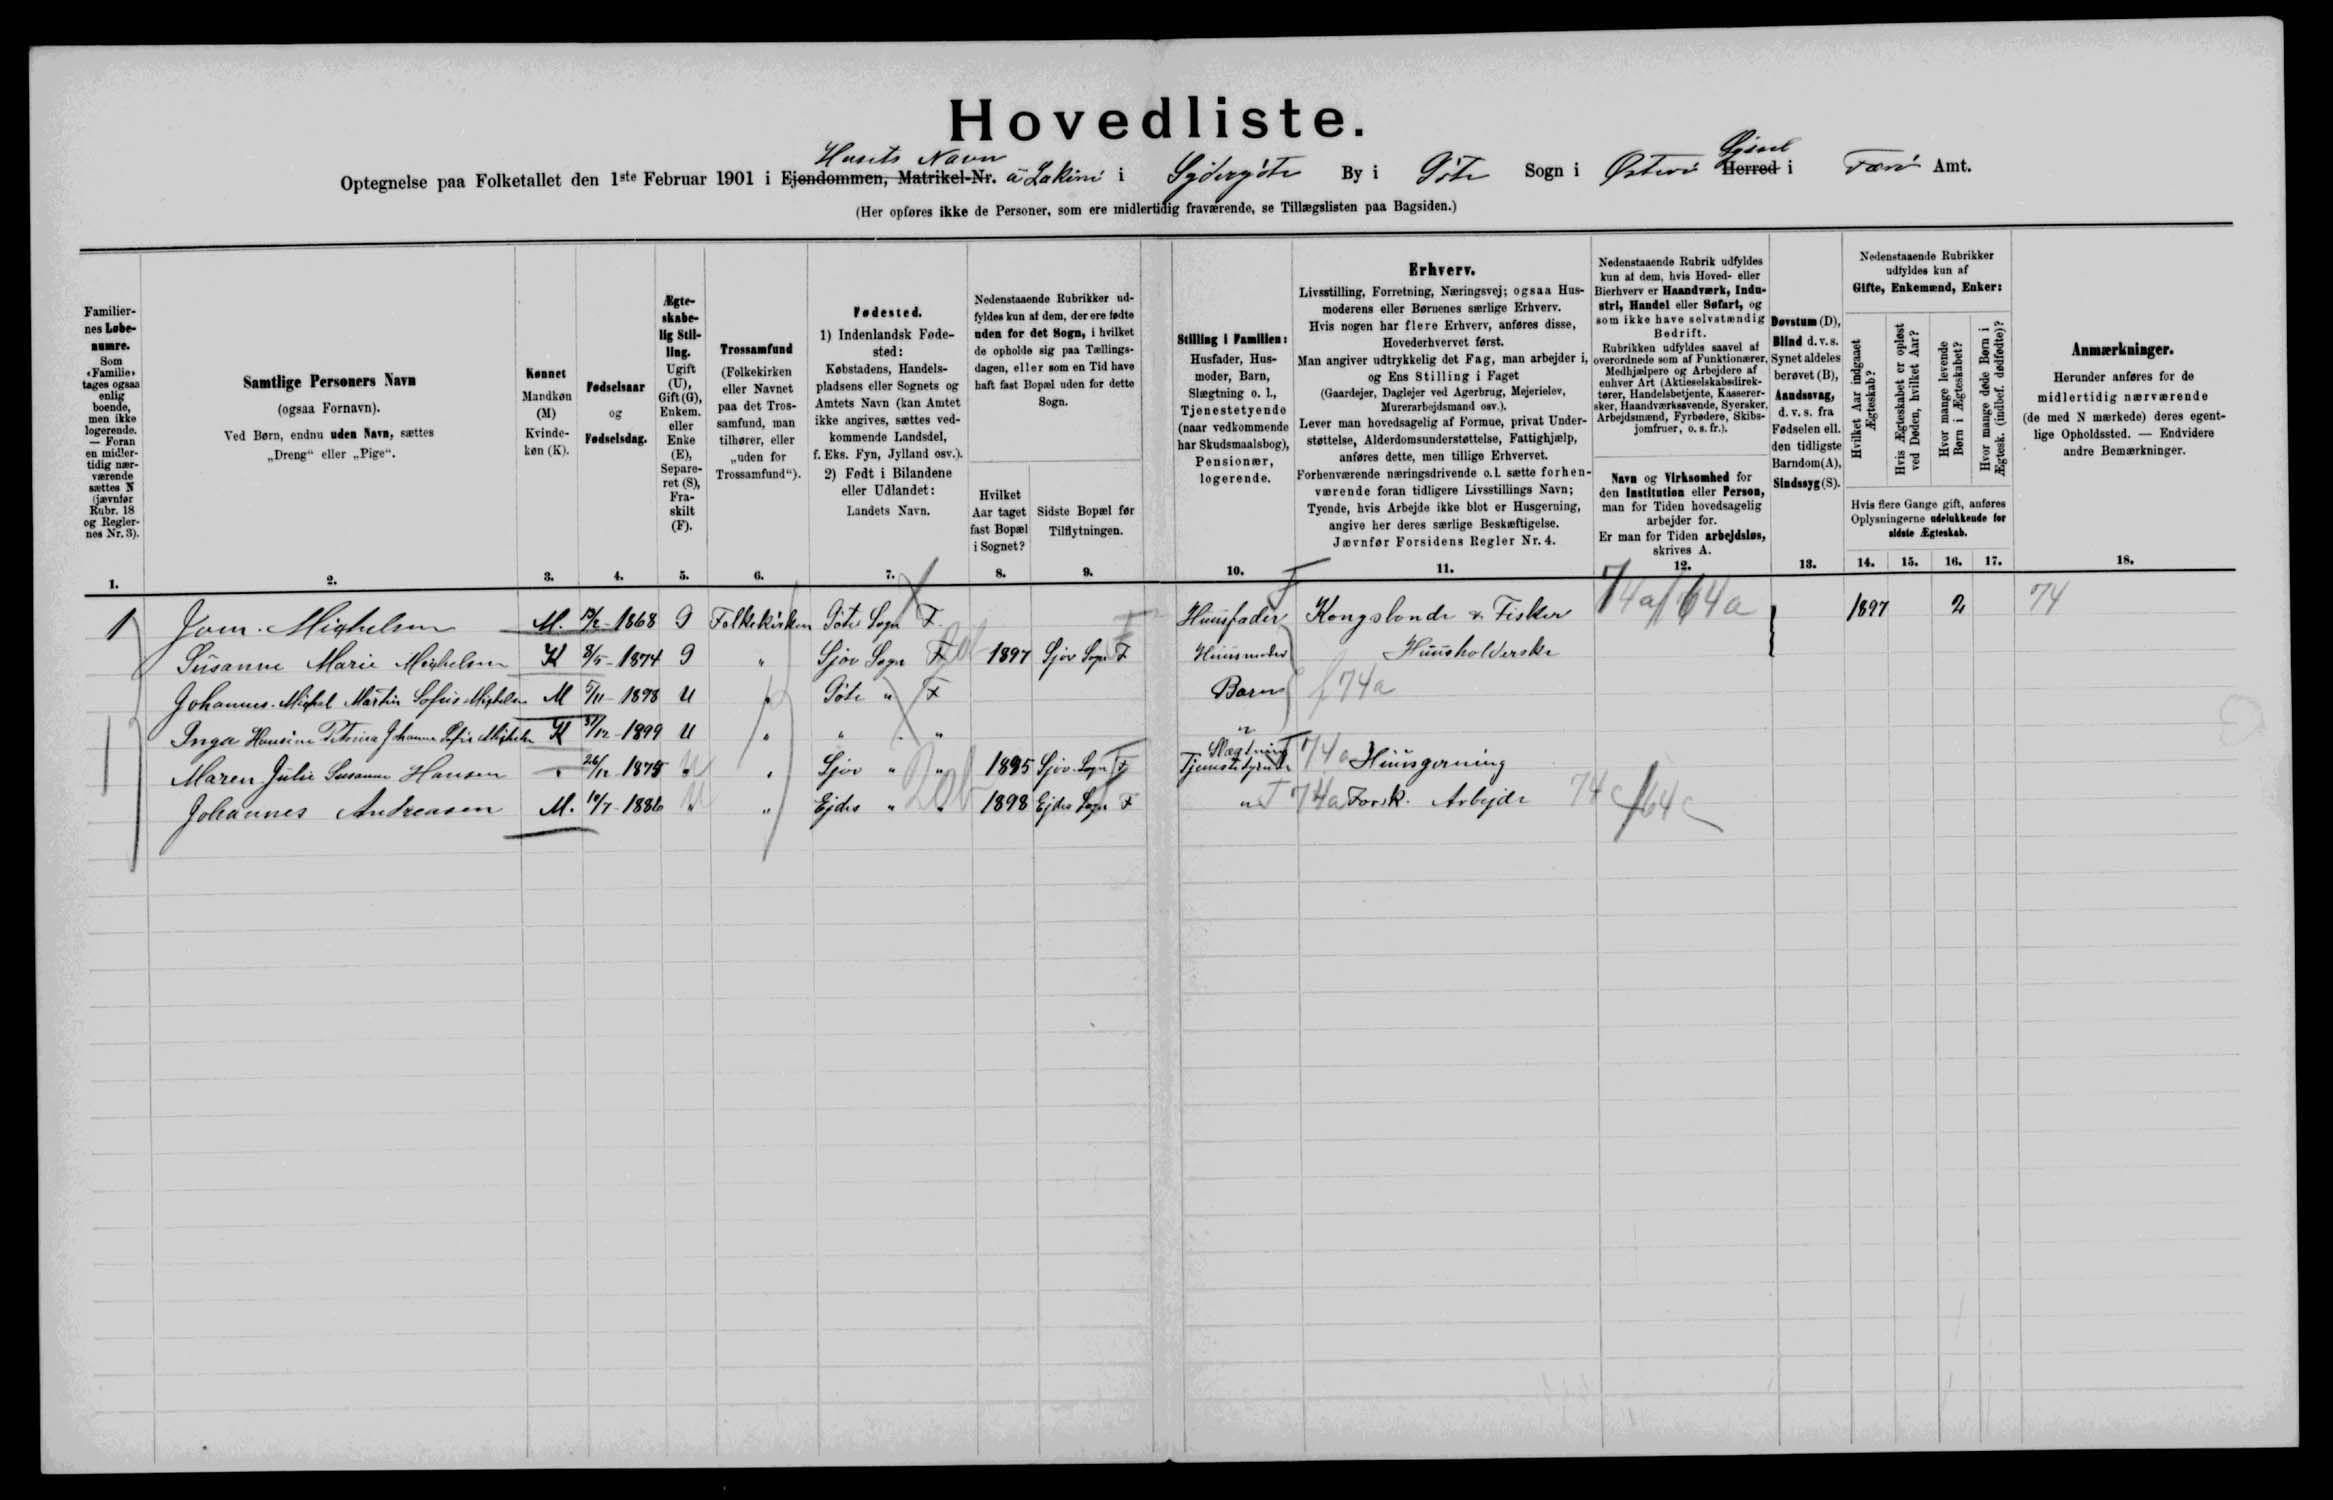 Hovedliste.
Husets Navn
Syssel
Optegnelse paa Folketallet den 1ste Februar 1901 i Ejendommen, Matrikel-Nr. á Lakini i Sydergöte By i Göte Sogn i Österö Herred i Færö Amt.
(Her opføres ikke de Personer, som ere midlertidig fraværende, se Tillægslisten paa Bagsiden.)
Familier-
nes Løbe-
numre.
Som
«Familie»
tages ogsaa
enlig
boende,
men ikke
logerende.
— Foran
en midler-
tidig nær-
værende
sættes N
(jævnfør
Rubr. 18
og Regler-
nes Nr. 3).
1.
Samtlige Personers Navn
(ogsaa Fornavn).
Ved Børn, endnu uden Navn, sættes
„Dreng“ eller „Pige“.
2.
Kønnet
Mandkøn
(M)
Kvinde-
køn (K).
3.
Fødselsaar
og
Fødselsdag.
4.
Ægte-
skabe-
lig Stil-
ling.
Ugift
(U),
Gift (G),
Enkem.
eller
Enke
(E),
Separe-
ret (S),
Fra-
skilt
(F).
5.
Trossamfund
(Folkekirken
eller Navnet
paa det Tros-
samfund, man
tilhører, eller
„uden for
Trossamfund“).
6.
Fødested.
1) Indenlandsk Føde-
sted:
Købstadens, Handels-
pladsens eller Sognets og
Amtets Navn (kan Amtet
ikke angives, sættes ved-
kommende Landsdel,
f. Eks. Fyn, Jylland osv.).
2) Født i Bilandene
eller Udlandet:
Landets Navn.
7.
Nedenstaaende Rubrikker ud-
fyldes kun af dem, der ere fødte
uden for det Sogn, i hvilket
de opholde sig paa Tællings-
dagen, eller som en Tid have
haft fast Bopæl uden for dette
Sogn.
Hvilket
Aar taget
fast Bopæl
i Sognet?
8.
Sidste Bopæl før
Tilflytningen.
9.
Stilling i Familien:
Husfader, Hus-
moder, Barn,
Slægtning o. l.,
Tjenestetyende
(naar vedkommende
har Skudsmaalsbog),
Pensionær,
logerende.
10.
Erhverv.
Livsstilling, Forretning, Næringsvej; ogsaa Hus-
moderens eller Børnenes særlige Erhverv.
Hvis nogen har flere Erhverv, anføres disse,
Hovederhvervet først.
Man angiver udtrykkelig det Fag, man arbejder i,
og Ens Stilling i Faget
(Gaardejer, Daglejer ved Agerbrug, Mejerielev,
Murerarbejdsmand osv.).
Lever man hovedsagelig af Formue, privat Under-
støttelse, Alderdomsunderstøttelse, Fattighjælp,
anføres dette, men tillige Erhvervet.
Forhenværende næringsdrivende o. l. sætte forhen-
værende foran tidligere Livsstillings Navn;
Tyende, hvis Arbejde ikke blot er Husgerning,
angive her deres særlige Beskæftigelse.
Jævnfør Forsidens Regler Nr. 4.
11.
Nedenstaaende Rubrik udfyldes
kun af dem, hvis Hoved- eller
Bierhverv er Haandværk, Indu-
stri, Handel eller Søfart, og
som ikke have selvstændig
Bedrift.
Rubrikken udfyldes saavel af
overordnede som af Funktionærer,
Medhjælpere og Arbejdere af
enhver Art (Aktieselskabsdirek-
tører, Handelsbetjente, Kasserer-
sker, Haandværkssvende, Syersker,
Arbejdsmænd, Fyrbødere, Skibs-
jomfruer, o. s. fr.).
Navn og Virksomhed for
den Institution eller Person,
man for Tiden hovedsagelig
arbejder for.
Er man for Tiden arbejdsløs,
skrives A.
12.
Døvstum (D),
Blind d. v. s.
Synet aldeles
berøvet (B),
Aandssvag,
d. v. s. fra
Fødselen ell.
den tidligste
Barndom (A),
Sindssyg (S).
13.
Nedenstaaende Rubrikker
udfyldes kun af
Gifte, Enkemænd, Enker:
Hvilket Aar indgaaet
Ægteskab?
Hvis Ægteskabet er opløst
ved Døden, hvilket Aar?
Hvor mange levende
Børn i Ægteskabet?
Hvor mange døde Børn i
Ægtesk. (indbef. dødfødte)?
Hvis flere Gange gift, anføres
Oplysningerne udelukkende for
sidste Ægteskab.
14. 15. 16. 17.
Anmærkninger.
Herunder anføres for de
midlertidig nærværende
(de med N mærkede) deres egent-
lige Opholdssted. — Endvidere
andre Bemærkninger.
18.
1 Joen. Mighelsen M. 1868 G Folkekirken Göte Sogn F. Huusfader Kongsbonde & Fisker 74a 64a 1897 2 74
Susanne Marie Mighelsen K 8/5-1874 G " Sjov Sogn F 1897 Sjov Sogn F Huusmoder Huusholderske
Johannes. Mighel Martin Sofus Mighelsen M 5/11-1898 U " Göte " F Barn 74a
Inga Hansine Petrina Johanne Sofie Mighelsen K 31/12-1899 U " " " " "
Slægtning
Maren Julie Susanne Hansen " 26/12-1875 " " Sjov " " 1895 Sjov Sogn F Tjenestetyende 74a Huusgerning
Johannes Andreasen M. 10/7-1886 " " Ejdes " " 1898 Ejdes Sogn F " 74a Forsk. Arbejde 74c 64c